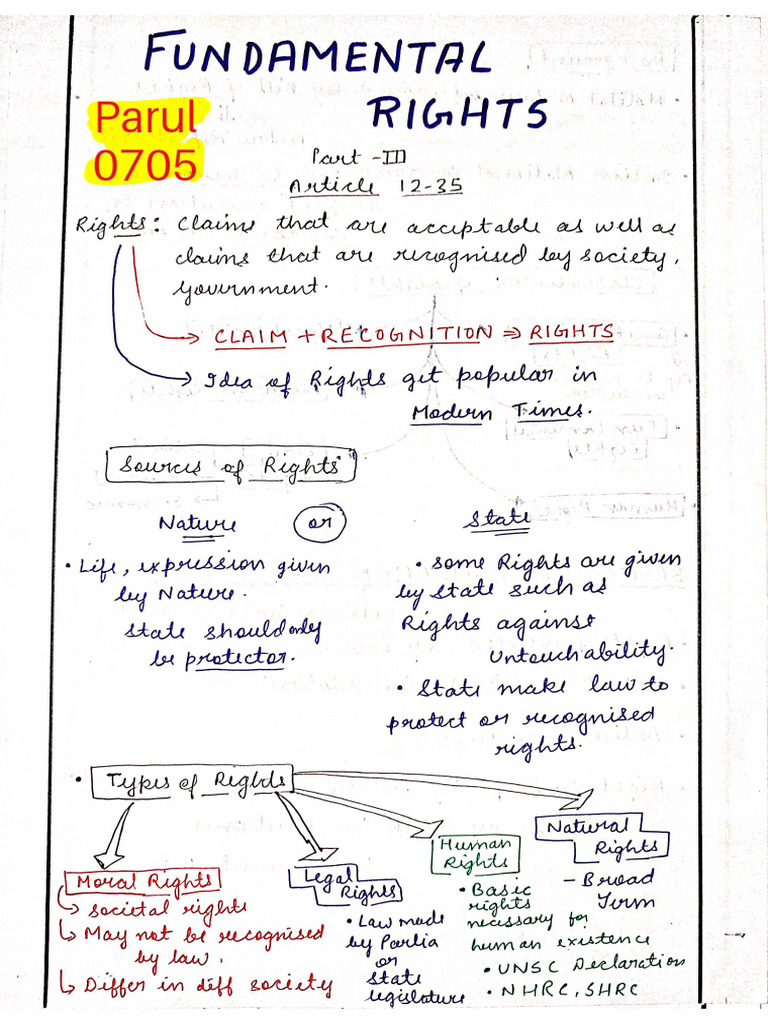 FUNDAMENTAL
RIGHTS
Parul
0705
Part -III
Article 12-35
Rights: Claims that are acceptable as well as
claims that are recognised by society,
Government.
CLAIM + RECOGNITION ⇒ RIGHTS
Idea of Rights get popular in
Modern Times.
Sources of Rights
Nature or State
• Life, expression given
by Nature.
State should only
be protector.
• Some Rights are given
by state such as
Rights against
Untouchability.
• State make law to
protect or recognised
rights.
• Types of Rights
Moral Rights
societal rights
May not be recognised
by law.
Differ in diff society
Legal
Rights
• Law made
by Parlia
or
state
legislature
Human
Rights
• Basic
rights
necessary for
human existence
• UNSC Declaration
• NHRC, SHRC
Natural
Rights
- Broad
Term